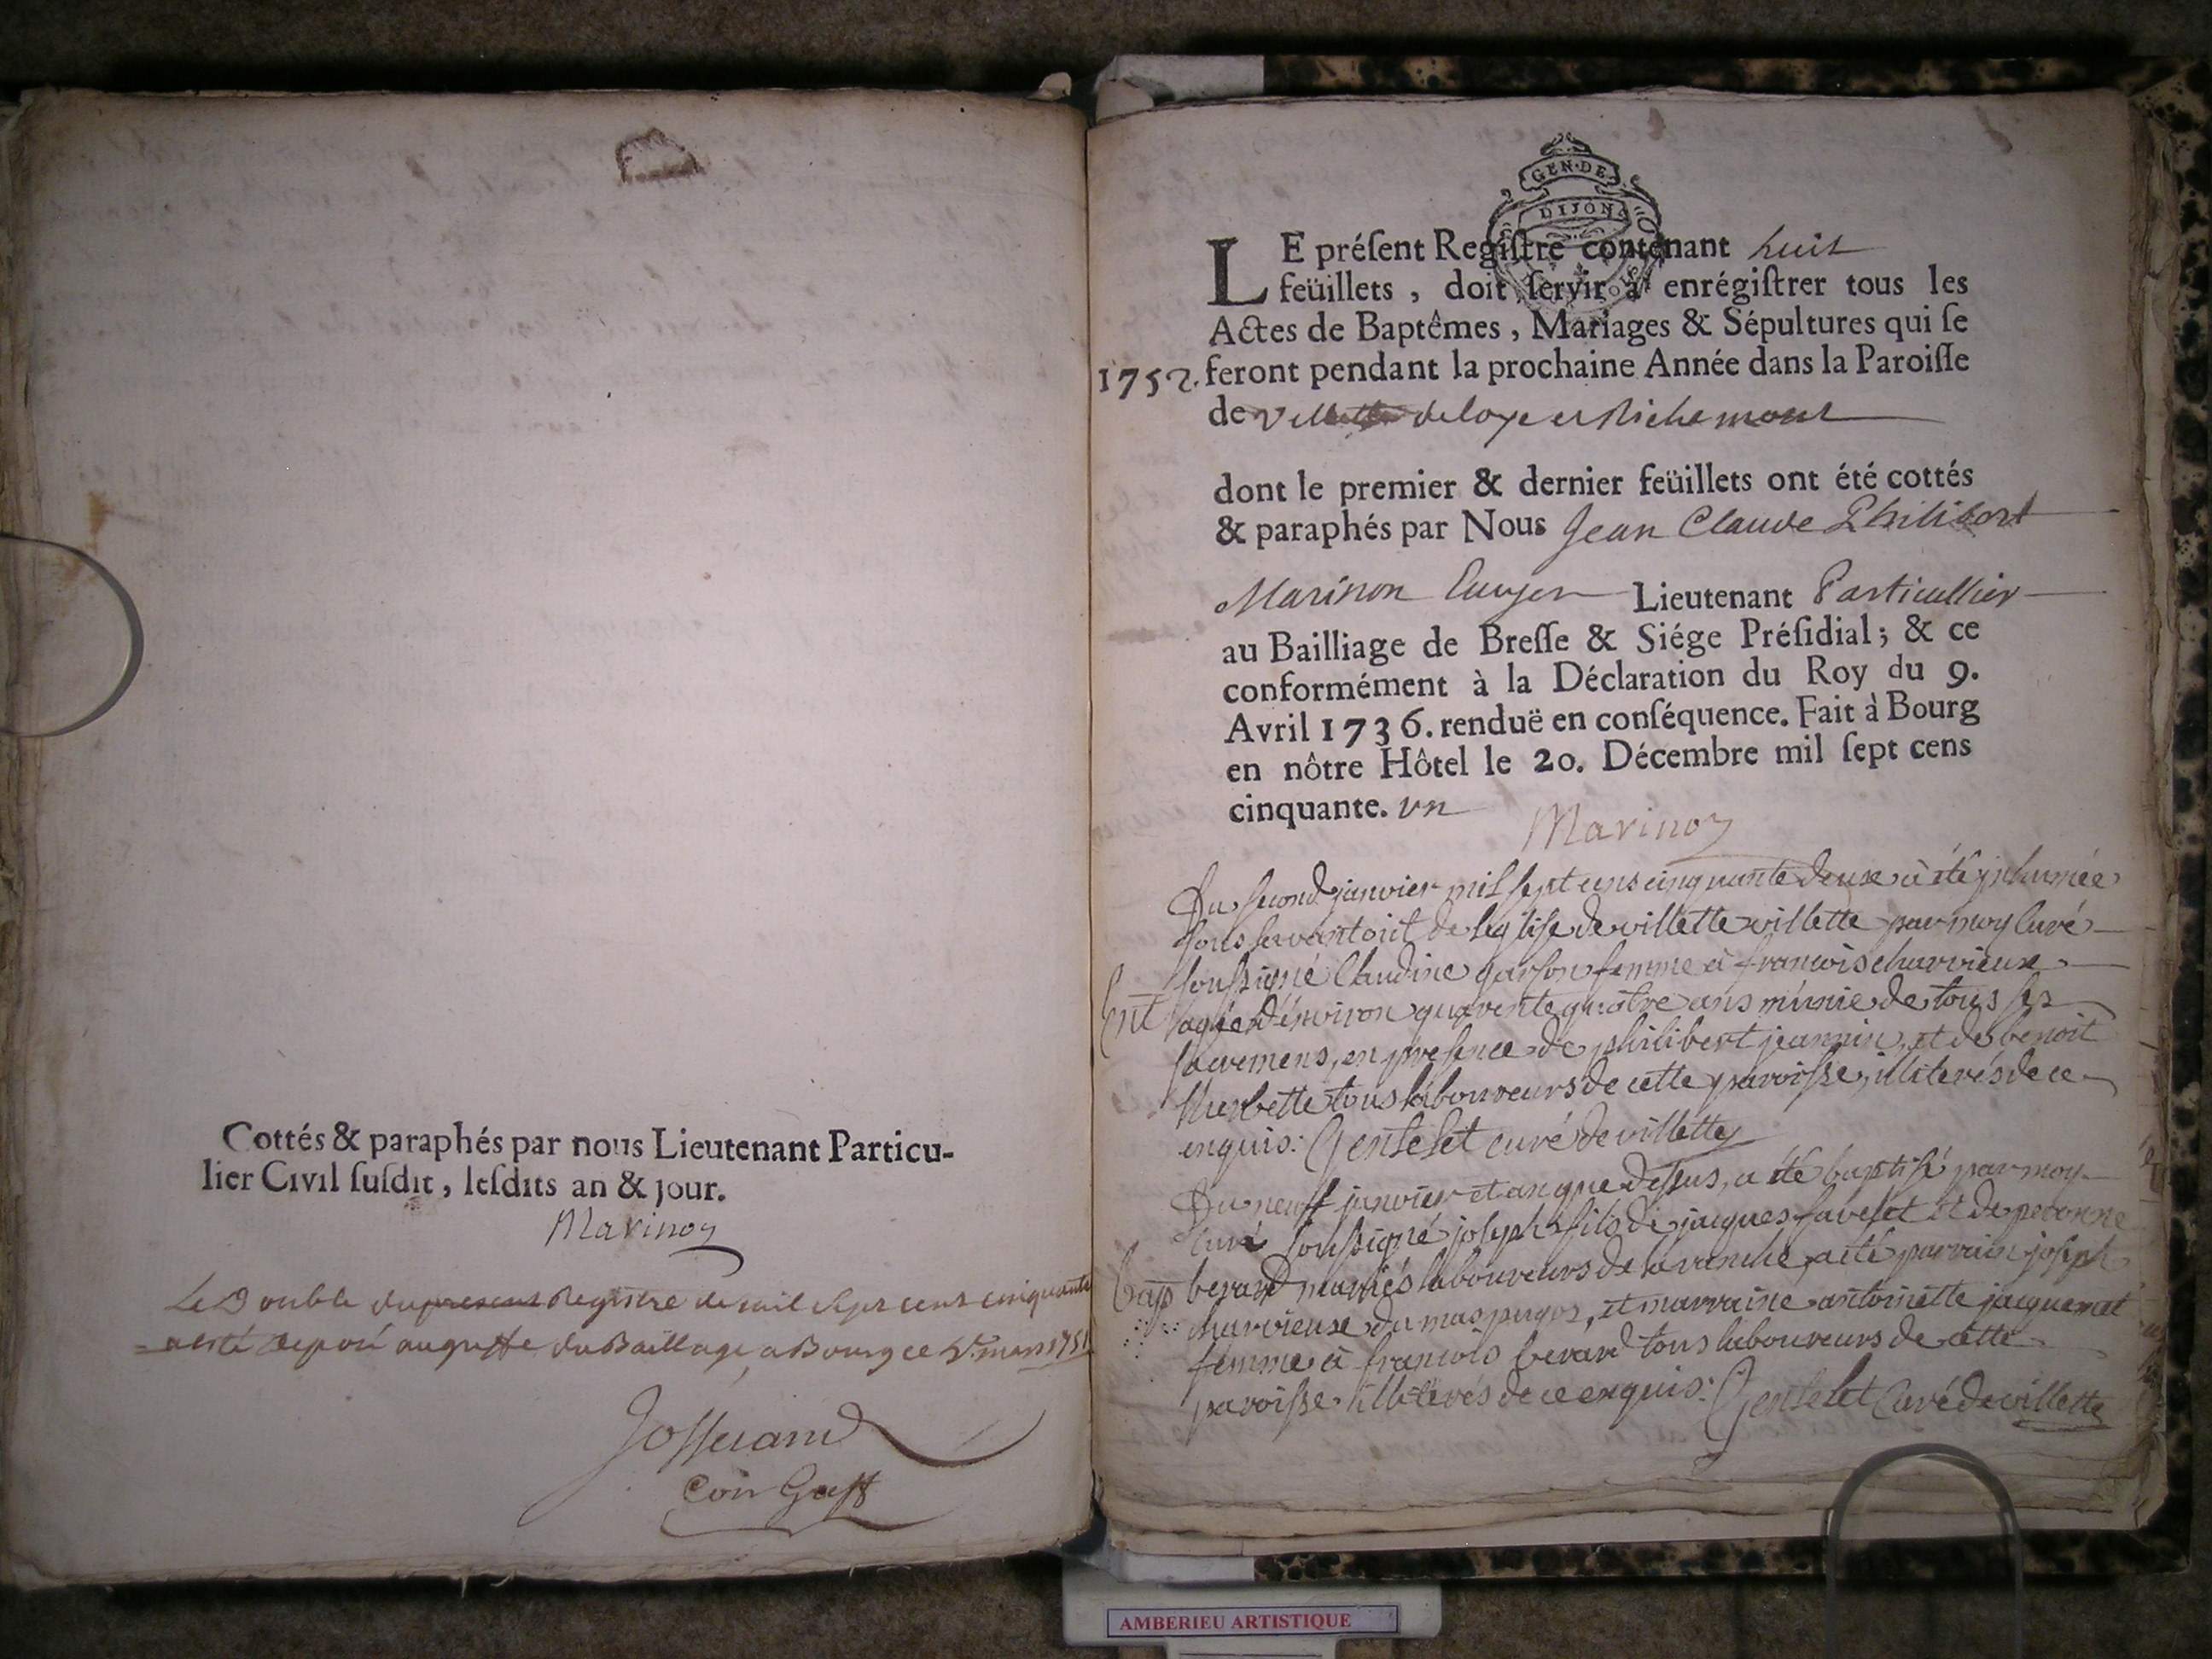 Cottés & paraphés par nous Lieutenant Particu-
lier Civil ſuſdit, leſdits an & jour.
Marinon
Le Double du present Registre de mil sept cent cinquante
a esté deposé au greffe du Baillage a Bourg ce 2e. mars 1751
Josserand
GEN·DE
DIJON
LE préſent Regiſtre contenant huit
feüillets, doit ſervir à enrégiſtrer tous les
Actes de Baptêmes, Mariages & Sépultures qui ſe
1752. feront pendant la prochaine Année dans la Paroiſſe
de Villette de loye et Richemont
dont le premier & dernier feüillets ont été cottés
& paraphés par Nous Jean Claude Philibert
Marinon Ecuyer Lieutenant Particullier
au Bailliage de Breſſe & Siége Préſidial; & ce
conformément à la Déclaration du Roy du 9.
Avril 1736. renduë en conſéquence. Fait à Bourg
en nôtre Hôtel le 20. Décembre mil ſept cens
cinquante. un
Marinon
Du second janvier mil sept cens cinquante deux à été inhumée
sous de leglise de villette villette par moy Curé
soussigné Claudine garson femme à francois charvieux
Ent agée denviron quarente quatre ans munie de tous ses
sacremens, en presence de philibert jeannin, et de benoit
tous laboureurs de cette paroisse, illiterés de ce
enquis: Genselet curé de villette
Du neuf janvier et an que dessus, a été baptisé par moy
Curé soussigné joseph fils de jacques favelet et de peronne
bap berard mariés laboureurs de la ranche, a été parrain joseph
charvieux du mas pugos, et marraine antoinette jacquemet
femme à francois berard tous laboureurs de cette
paroisse illiterés de ce enquis: Genselet Curé de villette
AMBERIEU ARTISTIQUE